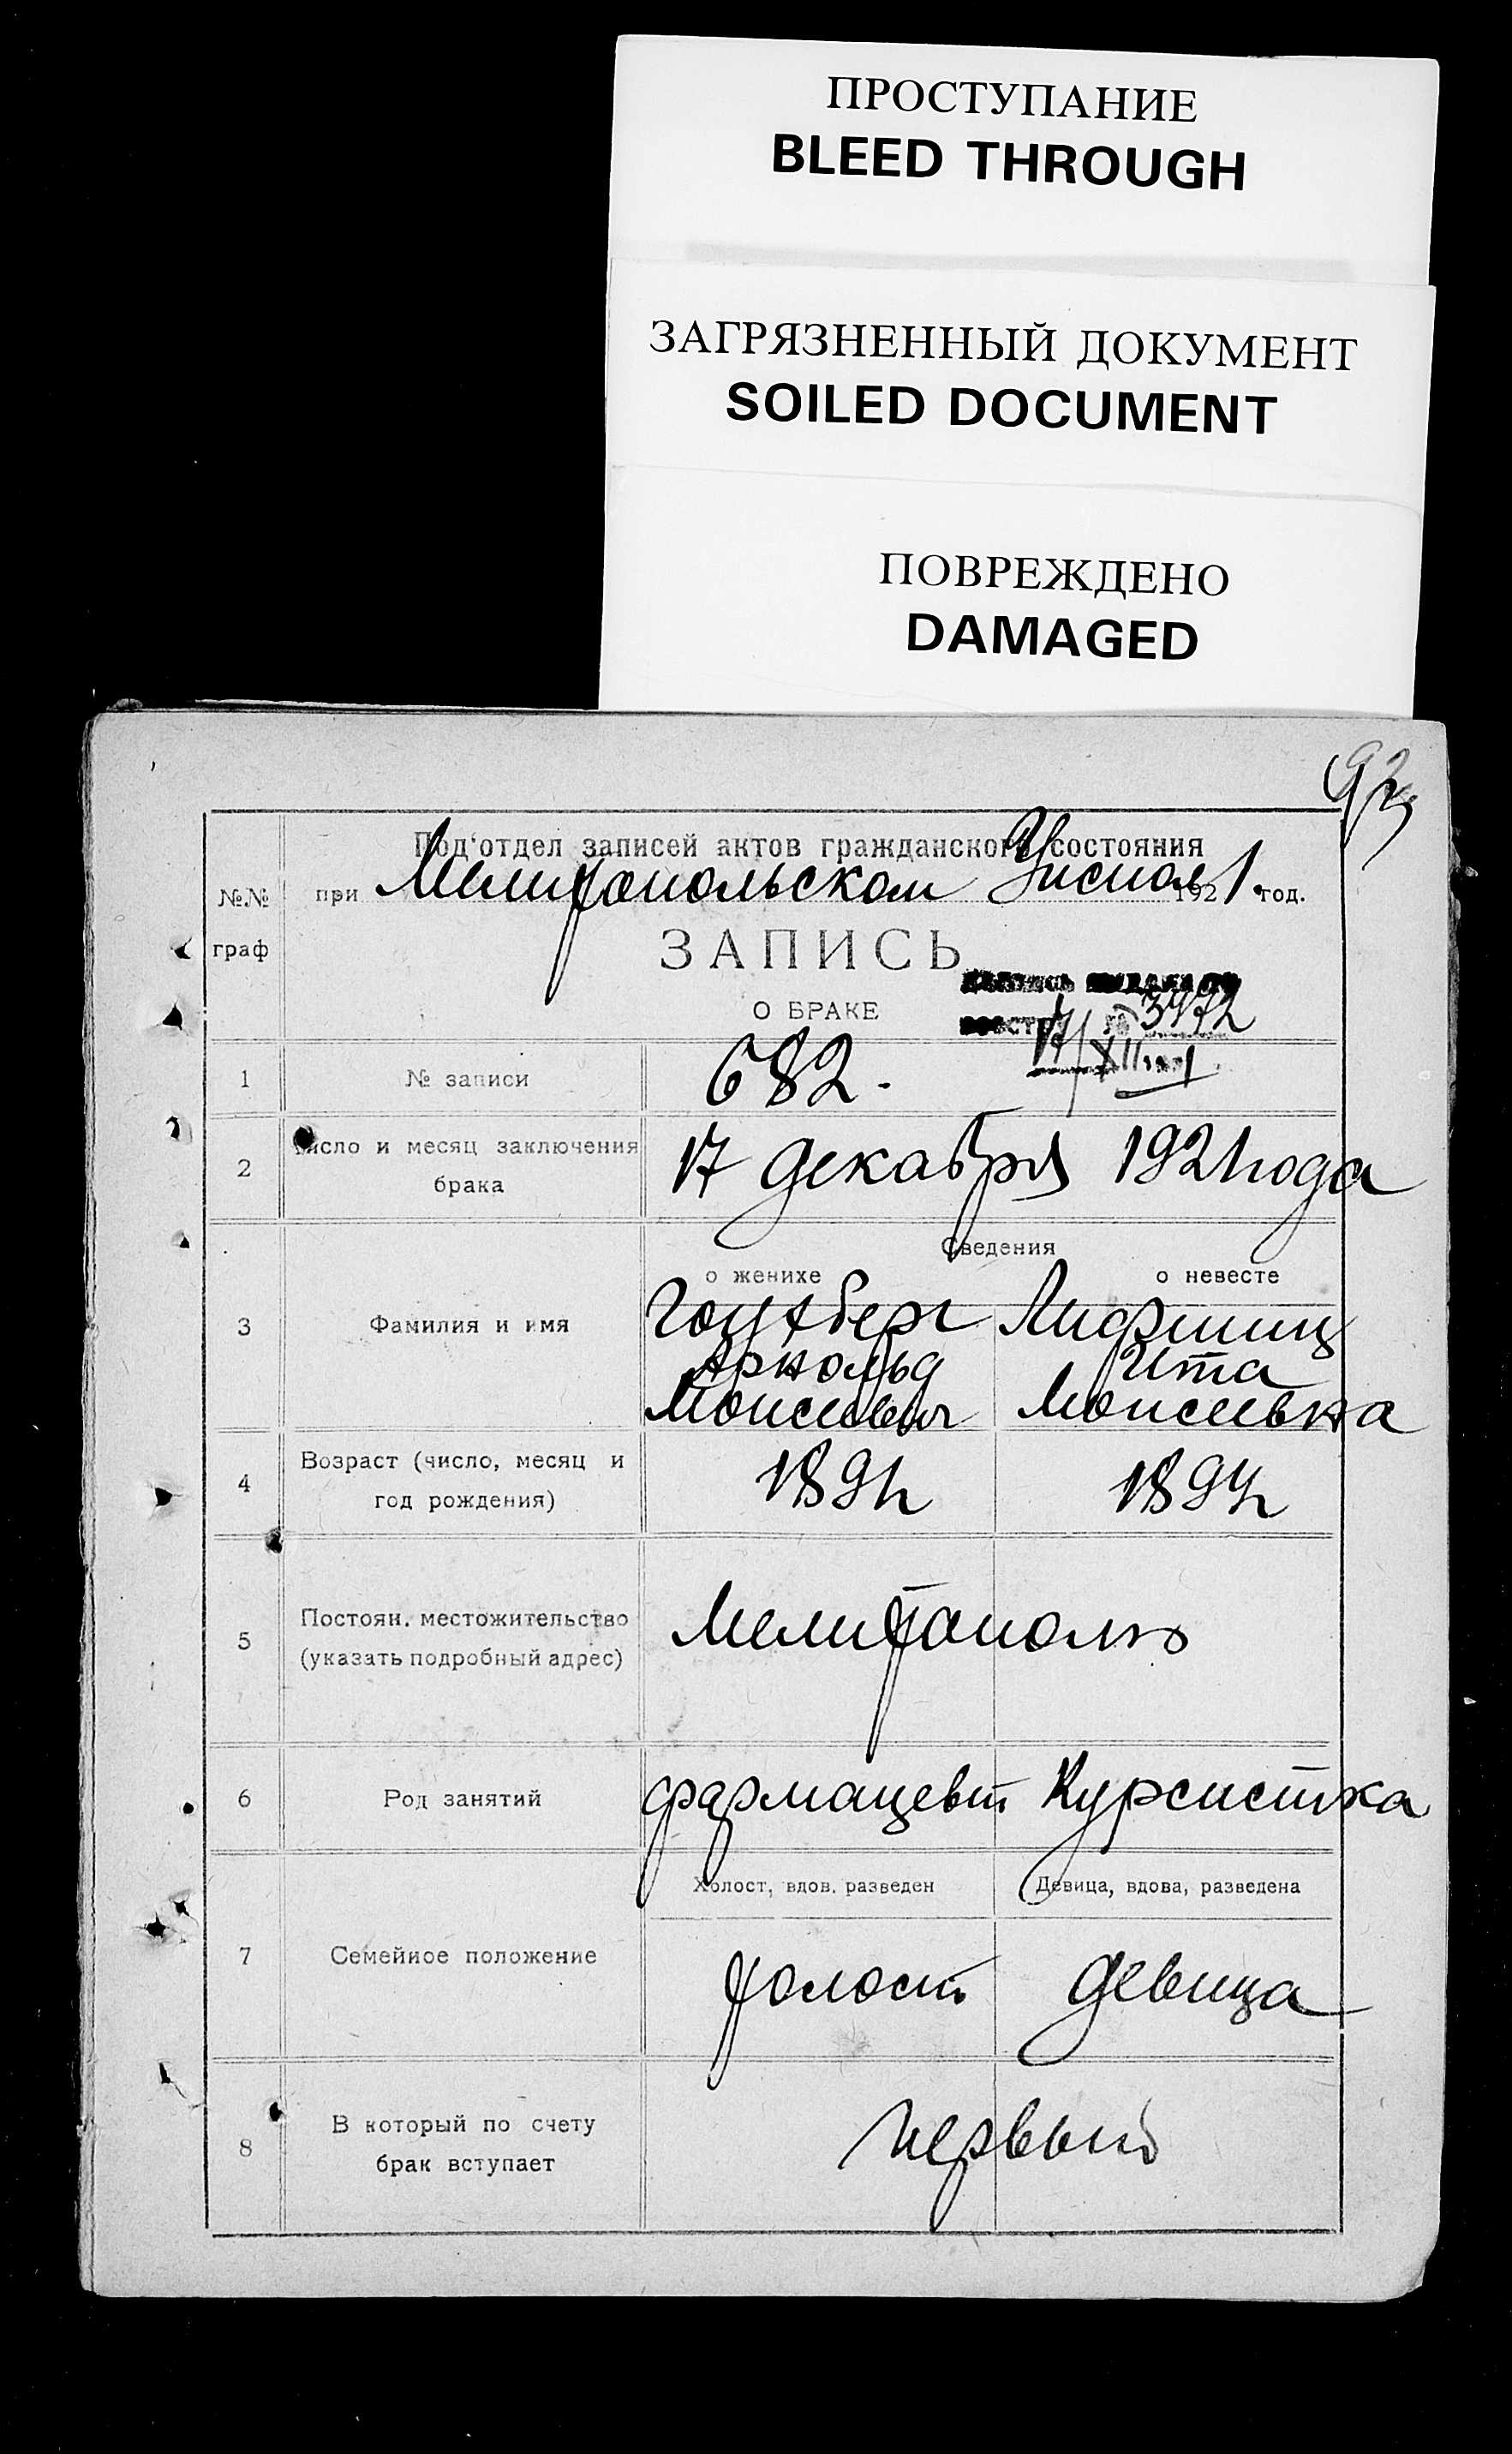 ПРОСТУПАНИЕ
BLEED THROUGH
ЗАГРЯЗНЕННЫЙ ДОКУМЕНТ
SOILED DOCUMENT
ПОВРЕЖДЕНО
DAMAGED
№№ граф
Под'отдел записей актов гражданского состояния
при Мелитопольском 1921 год.
ЗАПИСЬ
О БРАКЕ
3472
17/XII
1 № записи 682.
2 Число и месяц заключения брака 17 декабря 1921 года
Сведения
о женихе о невесте
3 Фамилия и имя
Лифшиц
Арнольд Ита
Моисеевич Моисеевна
4 Возраст (число, месяц и год рождения) 1891г 1897г
5 Постоян. местожительство (указать подробный адрес) Мелитополь
6 Род занятий фармацевт Курсистка
Холост, вдов. разведен Девица, вдова, разведена
7 Семейное положение холост девица
8 В который по счету брак вступает первый